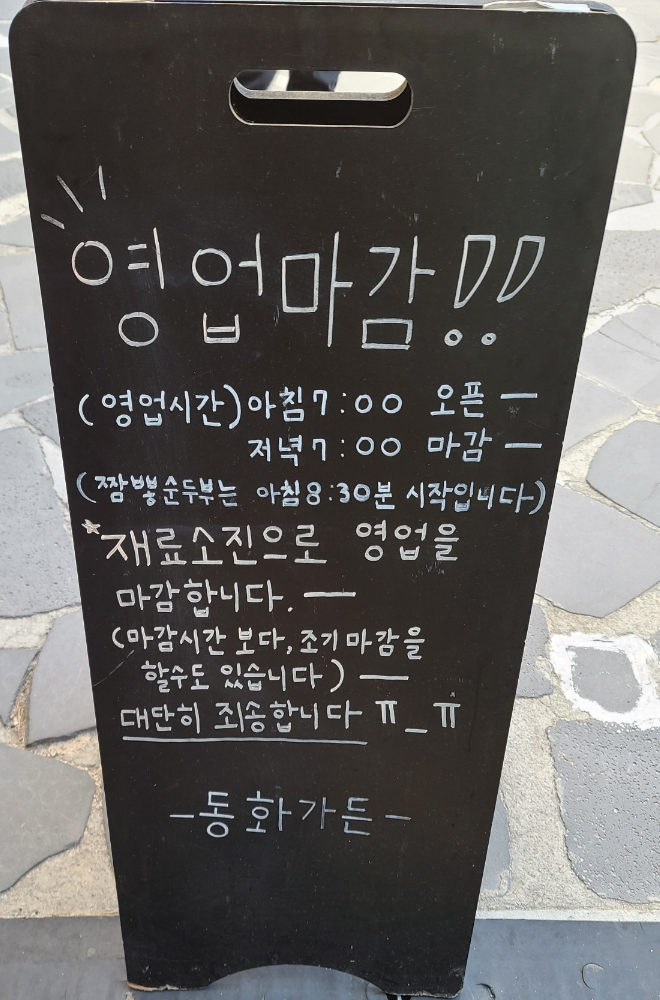 영업마감!!
(영업시간)아침7:00 오픈 ―
저녁7:00 마감 ―
(짬뽕순두부는 아침8:30분 시작입니다)
*재료소진으로 영업을
마감합니다. ―
(마감시간 보다, 조기마감을
할수도 있습니다) ―
대단히 죄송합니다 ㅠ_ㅠ
-동화가든-